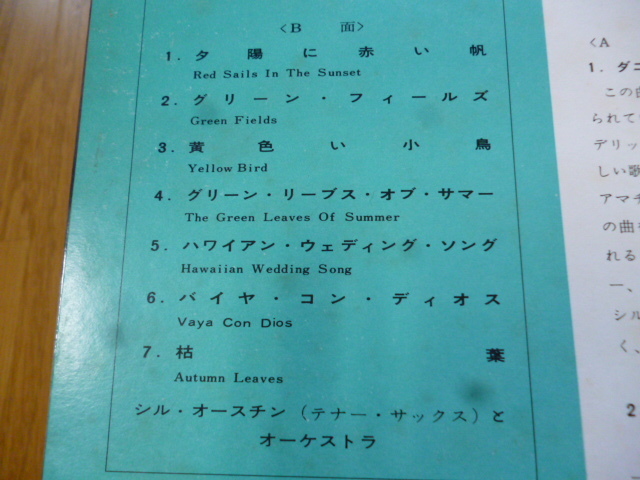 〈B 面〉
1. 夕陽に赤い帆
Red Sails In The Sunset
2. グリーン・フィールズ
Green Fields
3. 黄色い小鳥
Yellow Bird
4. グリーン・リーブス・オブ・サマー
The Green Leaves Of Summer
5. ハワイアン・ウェディング・ソング
Hawaiian Wedding Song
6. バイヤ・コン・ディオス
Vaya Con Dios
7. 枯葉
Autumn Leaves
シル・オースチン (テナー・サックス) と
オーケストラ
〈A
1. ダニ
この曲
られて
デリッ
しい歌
アマチ
の曲を
れる
ー、
シル
く、
2